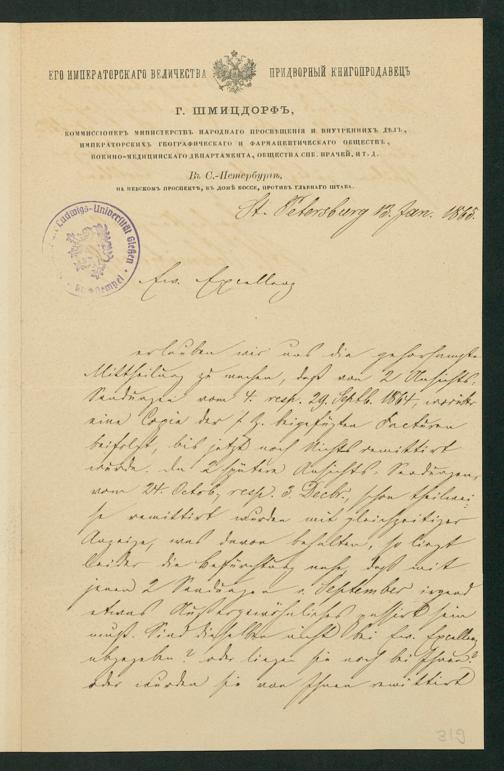 ЕГО ИМПЕРАТОРСКАГО ВЕЛИЧЕСТВА ПРИДВОРНЫЙ КНИГОПРОДАВЕЦЪ
Г. ШМИЦДОРФЪ,
КОММИССІОНЕРЪ МИНИСТЕРСТВЪ НАРОДНАГО ПРОСВѢЩЕНІЯ И ВНУТРЕННИХЪ ДѢЛЪ,
ИМПЕРАТОРСКИХЪ ГЕОГРАФИЧЕСКАГО И ФАРМАЦЕВТИЧЕСКАГО ОБЩЕСТВЪ,
ВОЕННО-МЕДИЦИНСКАГО ДЕПАРТАМЕНТА, ОБЩЕСТВА СПБ. ВРАЧЕЙ, И Т. Д.
Въ С.-Петербургѣ,
НА НЕВСКОМЪ ПРОСПЕКТѢ, ВЪ ДОМѢ КОССЕ, ПРОТИВЪ ГЛАВНАГО ШТАБА.
St. Petersburg 13. Jan. 1865.
Ludwigs-Universität Gießen
Ew. Excellenz
erlauben wir uns die gehorsamste
Mittheilung zu machen, daß von 2 Ansichts-
Sendungen vom 4. resp. 29. Septb. 1864, worüber
eine Copia der s. Z. beigefügten Facturen
beifolgt, bis jetzt noch Nichts remittirt
wurde. Da 2 spätere Ansichts-Sendungen,
vom 24. Octob. resp. 3. Decbr., schon theilwei-
se remittirt wurden mit gleichzeitiger
Anzeige, was davon behalten, so liegt
leider die Befürchtung nahe, daß mit
jenen 2 Sendungen v. September irgend
etwas Außergewöhnliches passirt sein
muß. Sind dieselben nicht bei Ew. Excellenz
abgegeben? oder liegen sie noch bei Ihnen?
oder wurden sie von Ihnen remittirt
319